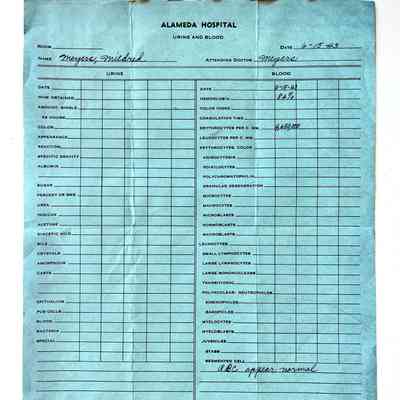 ALAMEDA HOSPITAL
URINE AND BLOOD
ROOM DATE 6-15-43
NAME Meyers, Mildred ATTENDING DOCTOR Meyers
URINE BLOOD
DATE DATE 6-15-43
HEMOGLOBIN 86%
COLOR INDEX
24 HOURS COAGULATION TIME
COLOR ERYTHROCYTES PER C. MM.
APPEARANCE LEUCOCYTES PER C. MM.
REACTION ERYTHROCYTES, COLOR
SPECIFIC GRAVITY ANISOCYTOSIS
ALBUMIN POIKILOCYTES
POLYCHROMATOPHILIA
SUGAR GRANULAR DEGENERATION
MICROCYTES
UREA MACROCYTES
INDICAN MICROBLASTS
ACETONE NORMOBLASTS
DIACETIC ACID MACROBLASTS
BILE LEUCOCYTES
CRYSTALS SMALL LYMPHOCYTES
AMORPHOUS LARGE LYMPHOCYTES
CASTS LARGE MONONUCLEARS
TRANSITIONAL
POLYNUCLEAR: NEUTROPHILES
EPITHELIUM EOSINOPHILES
PUS CELLS BASOPHILES
BLOOD MYELOCYTES
BACTERIA MYELOBLASTS
SPECIAL JUVENILES
STABS
SEGMENTED CELL
RBC appear normal